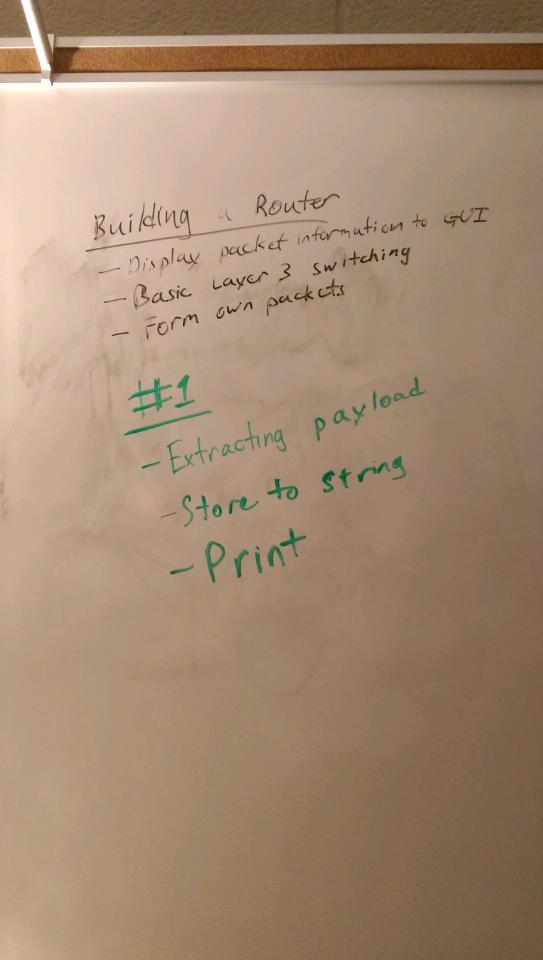 Building a Router
- Display packet information to GUI
- Basic Layer 3 switching
- Form own packets
#1
- Extracting payload
- Store to string
- Print